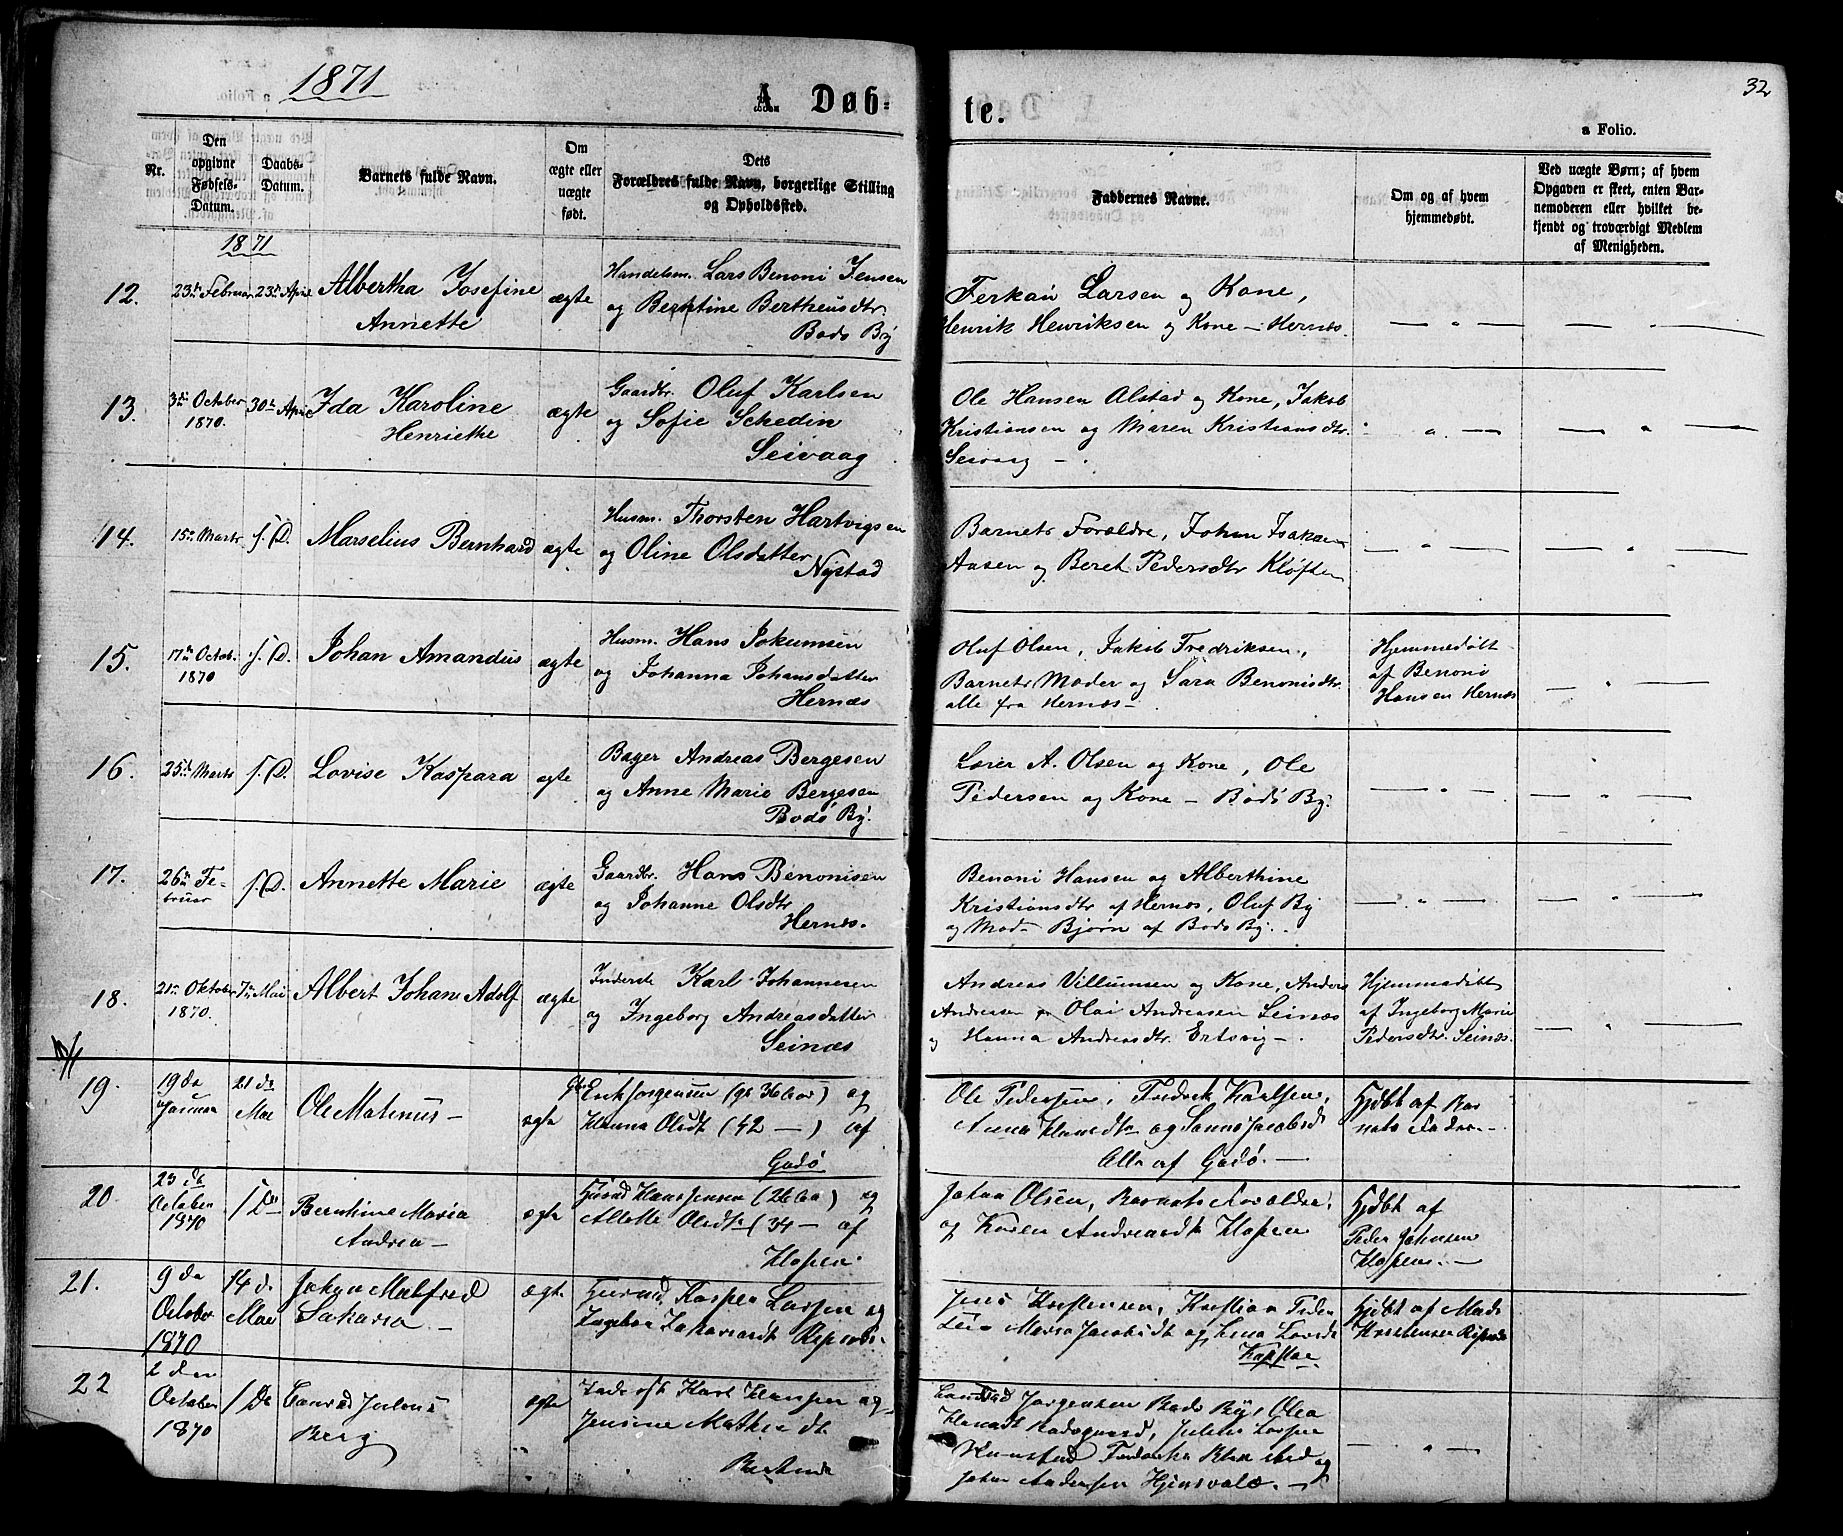 1871
A. Døb-
te.
32
a Folio.
Nr.
Den opgivne Fødsels-Datum.
Daabs-Datum.
Barnets fulde Navn.
Om ægte eller uægte født.
Dets Forældres fulde Navn, borgerlige Stilling og Opholdssted.
Faddernes Navne.
Om og af hvem hjemmedøbt.
Ved uægte Børn; af hvem Opgaven er skeet, enten Barnemoderen eller hvilket bekjendt og troværdigt Medlem af Menigheden.
1871
12. 23de Februar 23de April Albertha Josefine ægte Handelsm. Lars Benoni Jensen
Annette og Berntine Bertheusdtr
Bodø By
Larsen og Kone,
Henrik Henriksen og Kone - Hernæs.
13. 3die October 30te April Ida Karoline ægte Gaardbr. Oluf Karlsen
1870. Henriethe og Sofie Schedin
Seivaag
Ole Hansen Alstad og Kone, Jakob
Kristiansen og Maren Kristiansdtr.
Seivaag -
14. 15de Marts s. D. Marselius Bernhard ægte Husm. Thorsten Hartvigsen
og Oline Olsdatter
Nystad
Barnets Forældre, Johan Isaksen
Aasen og Beret Pedersdtr Kløften
15. 17de Octob. s. D. Johan Amandus ægte Husm. Hans Jokumsen
1870 og Johanna Johansdatter
Hernæs
Oluf Olsen, Jakob Fredriksen,
Barnets Moder og Sara Benonisdtr
alle fra Hernæs -
Hjemmedøbt
af Benoni
Hansen Hernæs
16. 25de Marts s. D. Lovise Kaspara ægte Bager Andreas Bergesen
og Anne Marie Bergesen
Bodø By.
A. Olsen og Kone, Ole
Pedersen og Kone - Bodø By.
17. 26de Fe-
bruar s. D. Annette Marie ægte Gaardbr. Hans Benonisen
og Johanne Olsdtr
Hernæs.
Benoni Hansen og Alberthine
Kristiansdtr af Hernæs, Oluf By
og Mad. Bjørn af Bodø By.
18. 21de Oktober 7de Mai Albert Johan Adolf ægte Inderst Karl Johannesen
1870. og Ingeborg Andreasdatter
Seinæs
Andreas Villumsen og Kone, Anders
Andreasen og Olai Andreasen Seinæs
og Hanna Andreasdtr. Ertsvig -
Hjemmedøbt
af Ingeborg Marie
Pedersdtr. Seinæs.
19. 19de 21de Ole Matinus - ægte Erik Jørgensen (gl. 36 Aar) og
Januar Mai Hanna Olsdt (42 -) af
Godø
Ole Pedersen, Fredrik Karlsen,
Anna Hansdtr og Jacobsd
Alle af Godø. -
Hjdbt af Bar
nets Fader. -
20. 23de
October s D. Berntine Maria ægte Hans Jensen (26 Aar) og
1870 Andrea - Olsdtr (34 - af
Klopen
Johan Olsen, Barnets Forældre,
og Karen Andreasdt Klopen
Hjdbt af
Peder Johnsen
Klopen. -
21. 9de 14de Johan Malfred ægte Kasper Larsen og
October Mai Sakaria - Ingebor Sakariasdt
1870
Jens Kristensen, Kristian Peder
Maria Jacobsdt og Lena Larsdt
Hjdbt af Mads
Kristensen
22 2den
October s D. Conrad Julius ægte Karl Hansen og
1870 Berg Jensine Mathiasdt
Jørgensen Bodø By, Olea
Hansdt
og
Johan Andersen